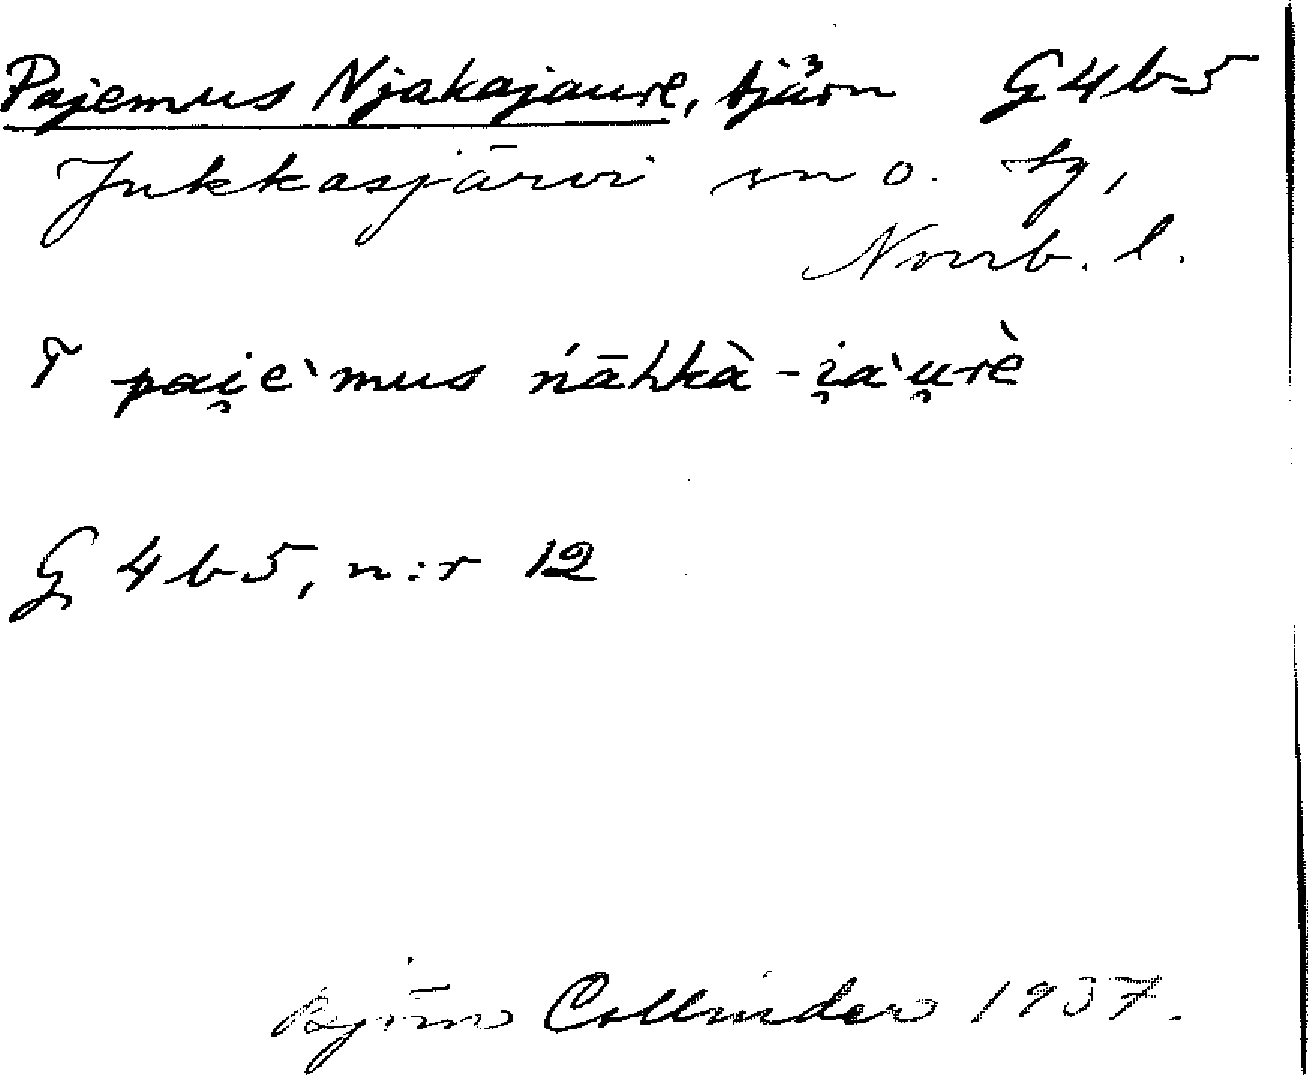 Pajemus Njakajaure, tjärn G4b5
Jukkasjärvi sn o. tg,
Norrb. l.
pai̯e`mus ńāhkà-i̯a`u̯rè
G 4b5, n:r 12
Björn Collinder 1937.